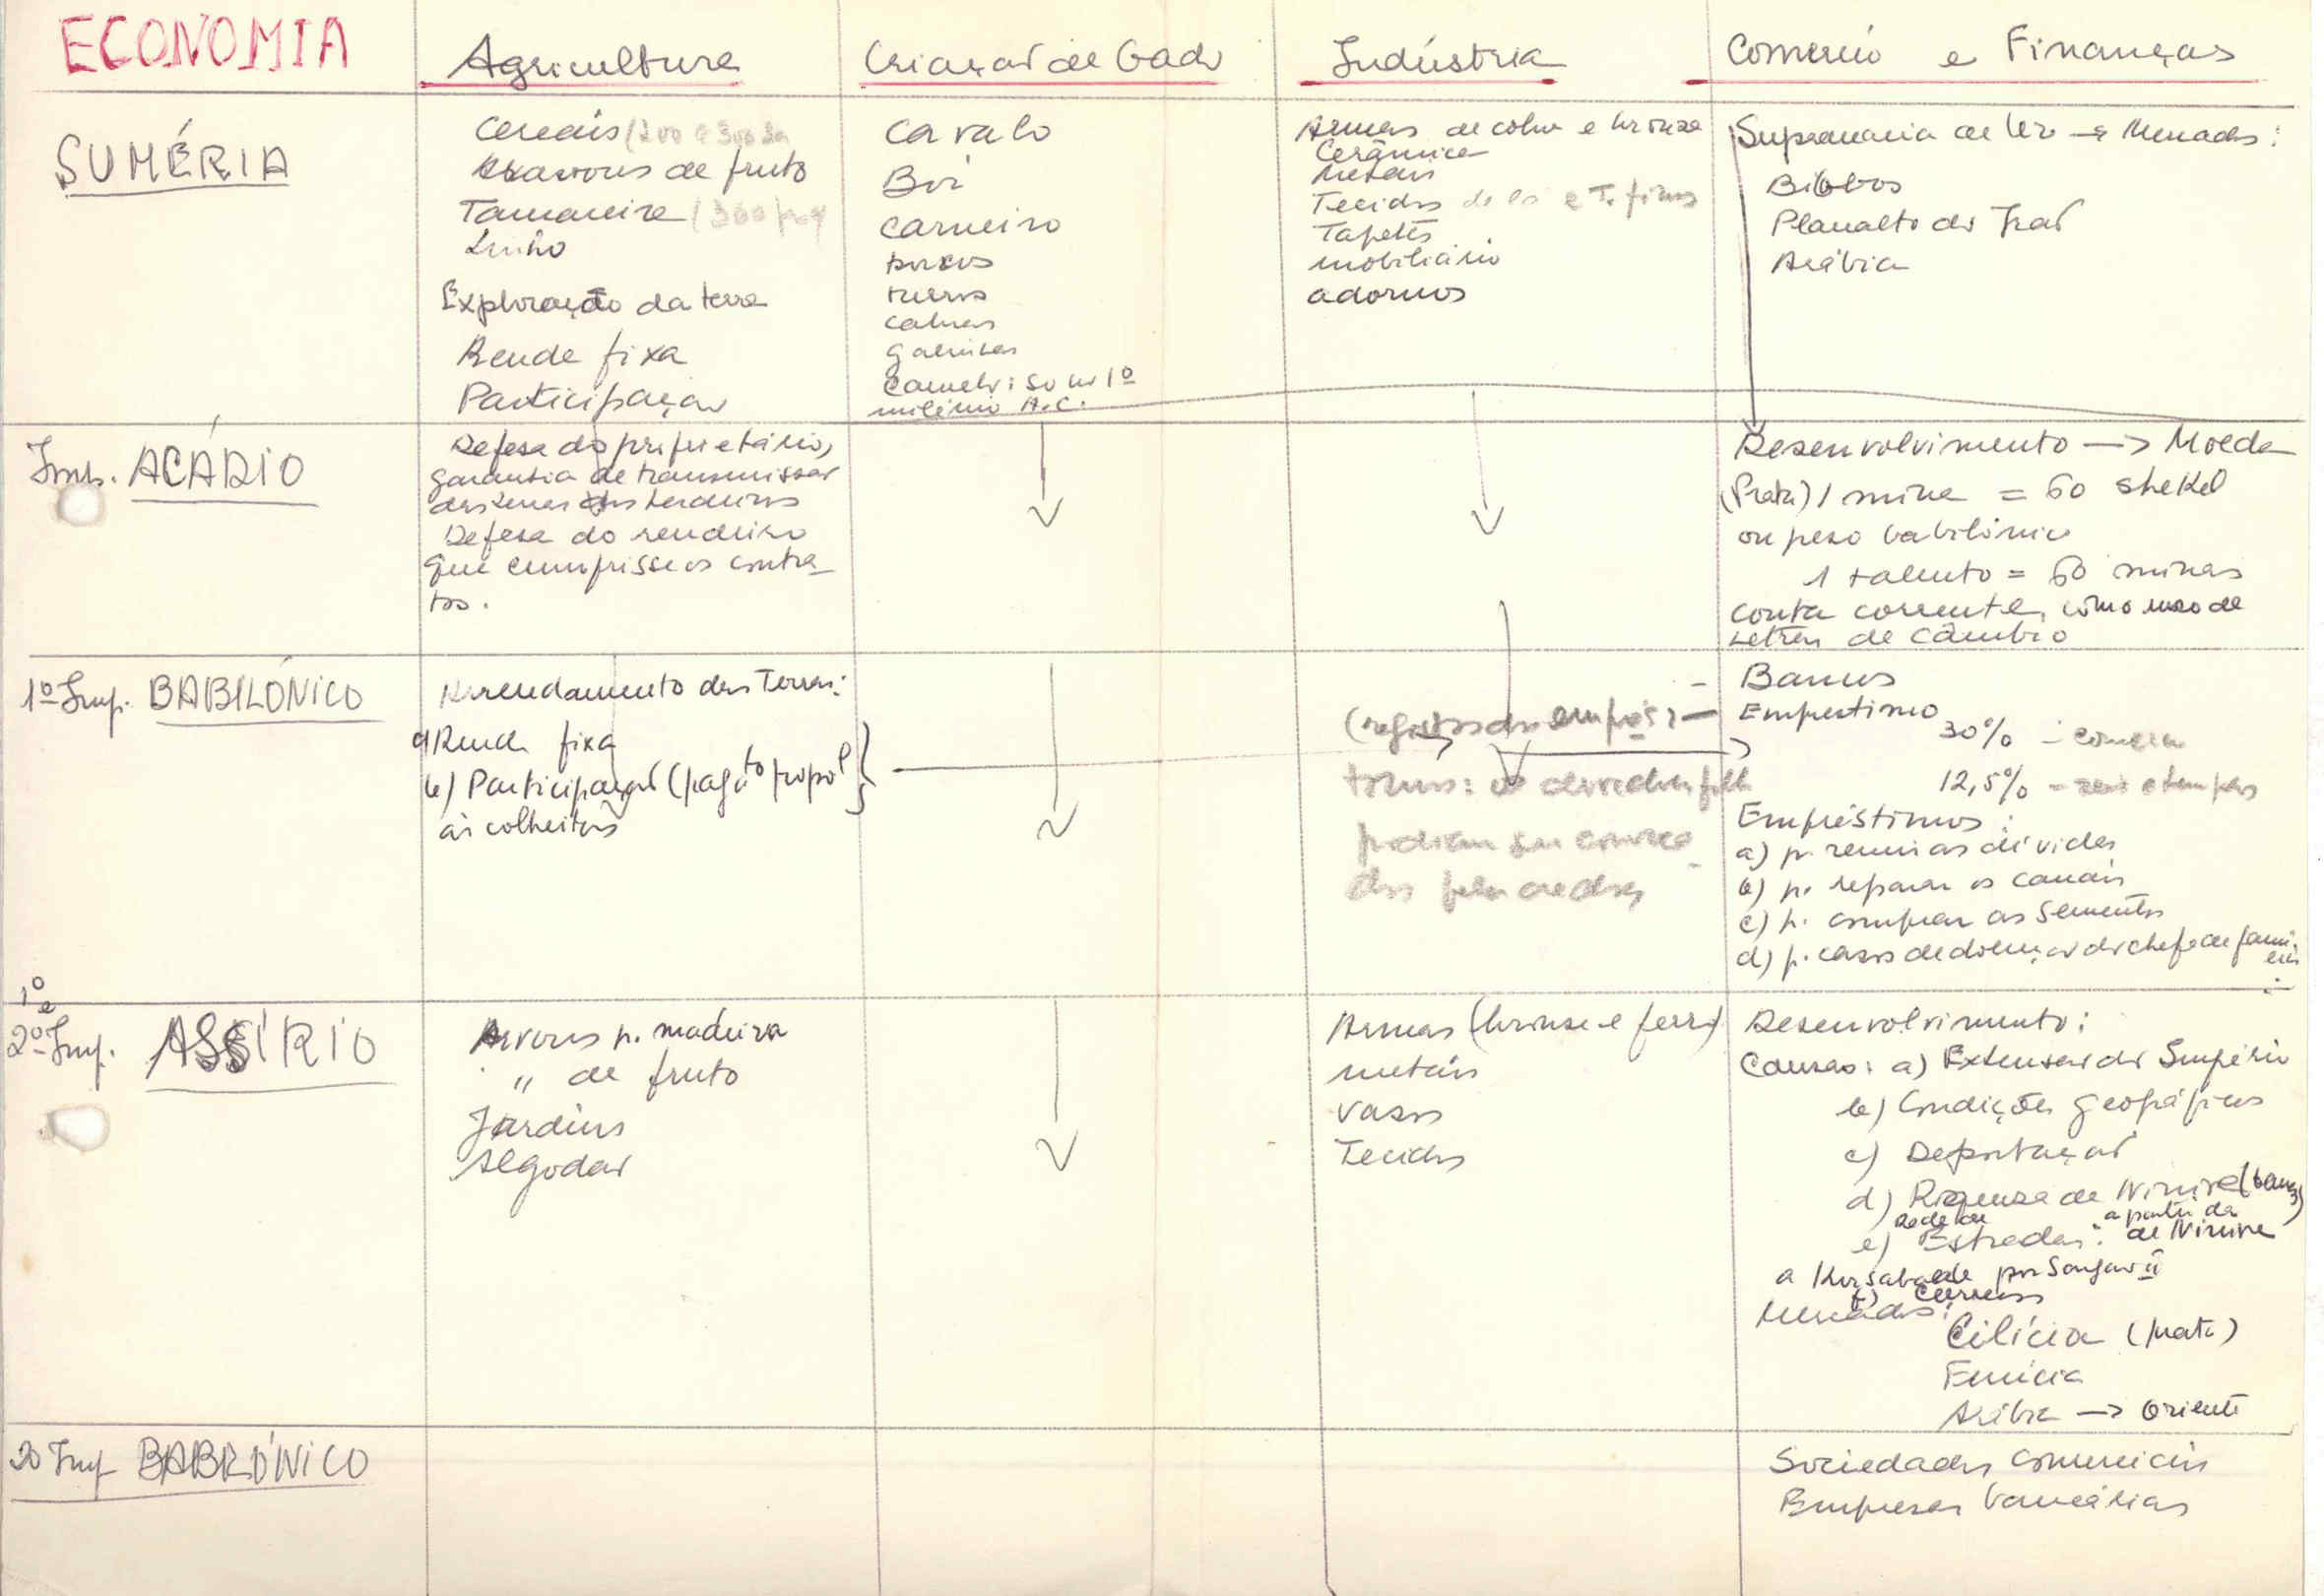 ECONOMIA
Agricultura
Criação de Gado
Indústria
Comércio e Finanças
SUMÉRIA
Cereais (200 e 300
de fruto
Tamareira (360
Linho
Exploração da terra
Renda fixa
Participação
Cavalo
Boi
Carneiro
porcos
burros
cabras
galinhas
Camelo: só no 1º
milénio A.C.
Armas de cobre e bronze
Cerâmica
metais
Tecidos de lã e T. finos
Tapetes
mobiliário
adornos
Supremacia de Ur → Mercados:
Biblos
Planalto do Irão
Arábia
Imp. ACÁDIO
Defesa do proprietário,
garantia de transmissão
das terras aos herdeiros
Defesa do rendeiro
que cumprisse os contra-
tos.
Desenvolvimento → Moeda
(Prata) 1 mina = 60 shekel
ou peso babilónico
1 talento = 60 minas
conta corrente, como uso de
Letras de câmbio
1º Imp. BABILÓNICO
Arrendamento das Terras:
a) Renda fixa
b) Participação (pagto propol
às colheitas
(registos dos emprés
timos: os
podiam ser
dos pelos credores
- Bancos
- Emprestimo
30% -
12,5% - e templos
Empréstimos:
a) p. remir as dívidas
b) p. reparar os canais
c) p. comprar as sementes
d) p. casos de doença do chefe de famí-
lia
1º
e
2º Imp. ASSÍRIO
Arvores p. madeira
" de fruto
Jardins
Algodão
Armas (bronze e ferro)
metais
vasos
Tecidos
Desenvolvimento:
Causas: a) Extensão do Império
b) Condições geográficas
c) Deportação
d) Riqueza de Ninive (banc
Rede de a partir da
e) Estradas: de Ninive
a Korsabade por Sargão II
f) Correios
Mercados:
Cilícia (prata)
Fenícia
Arábia → Oriente
2º Imp BABILÓNICO
Sociedades comerciais
Empresas bancárias